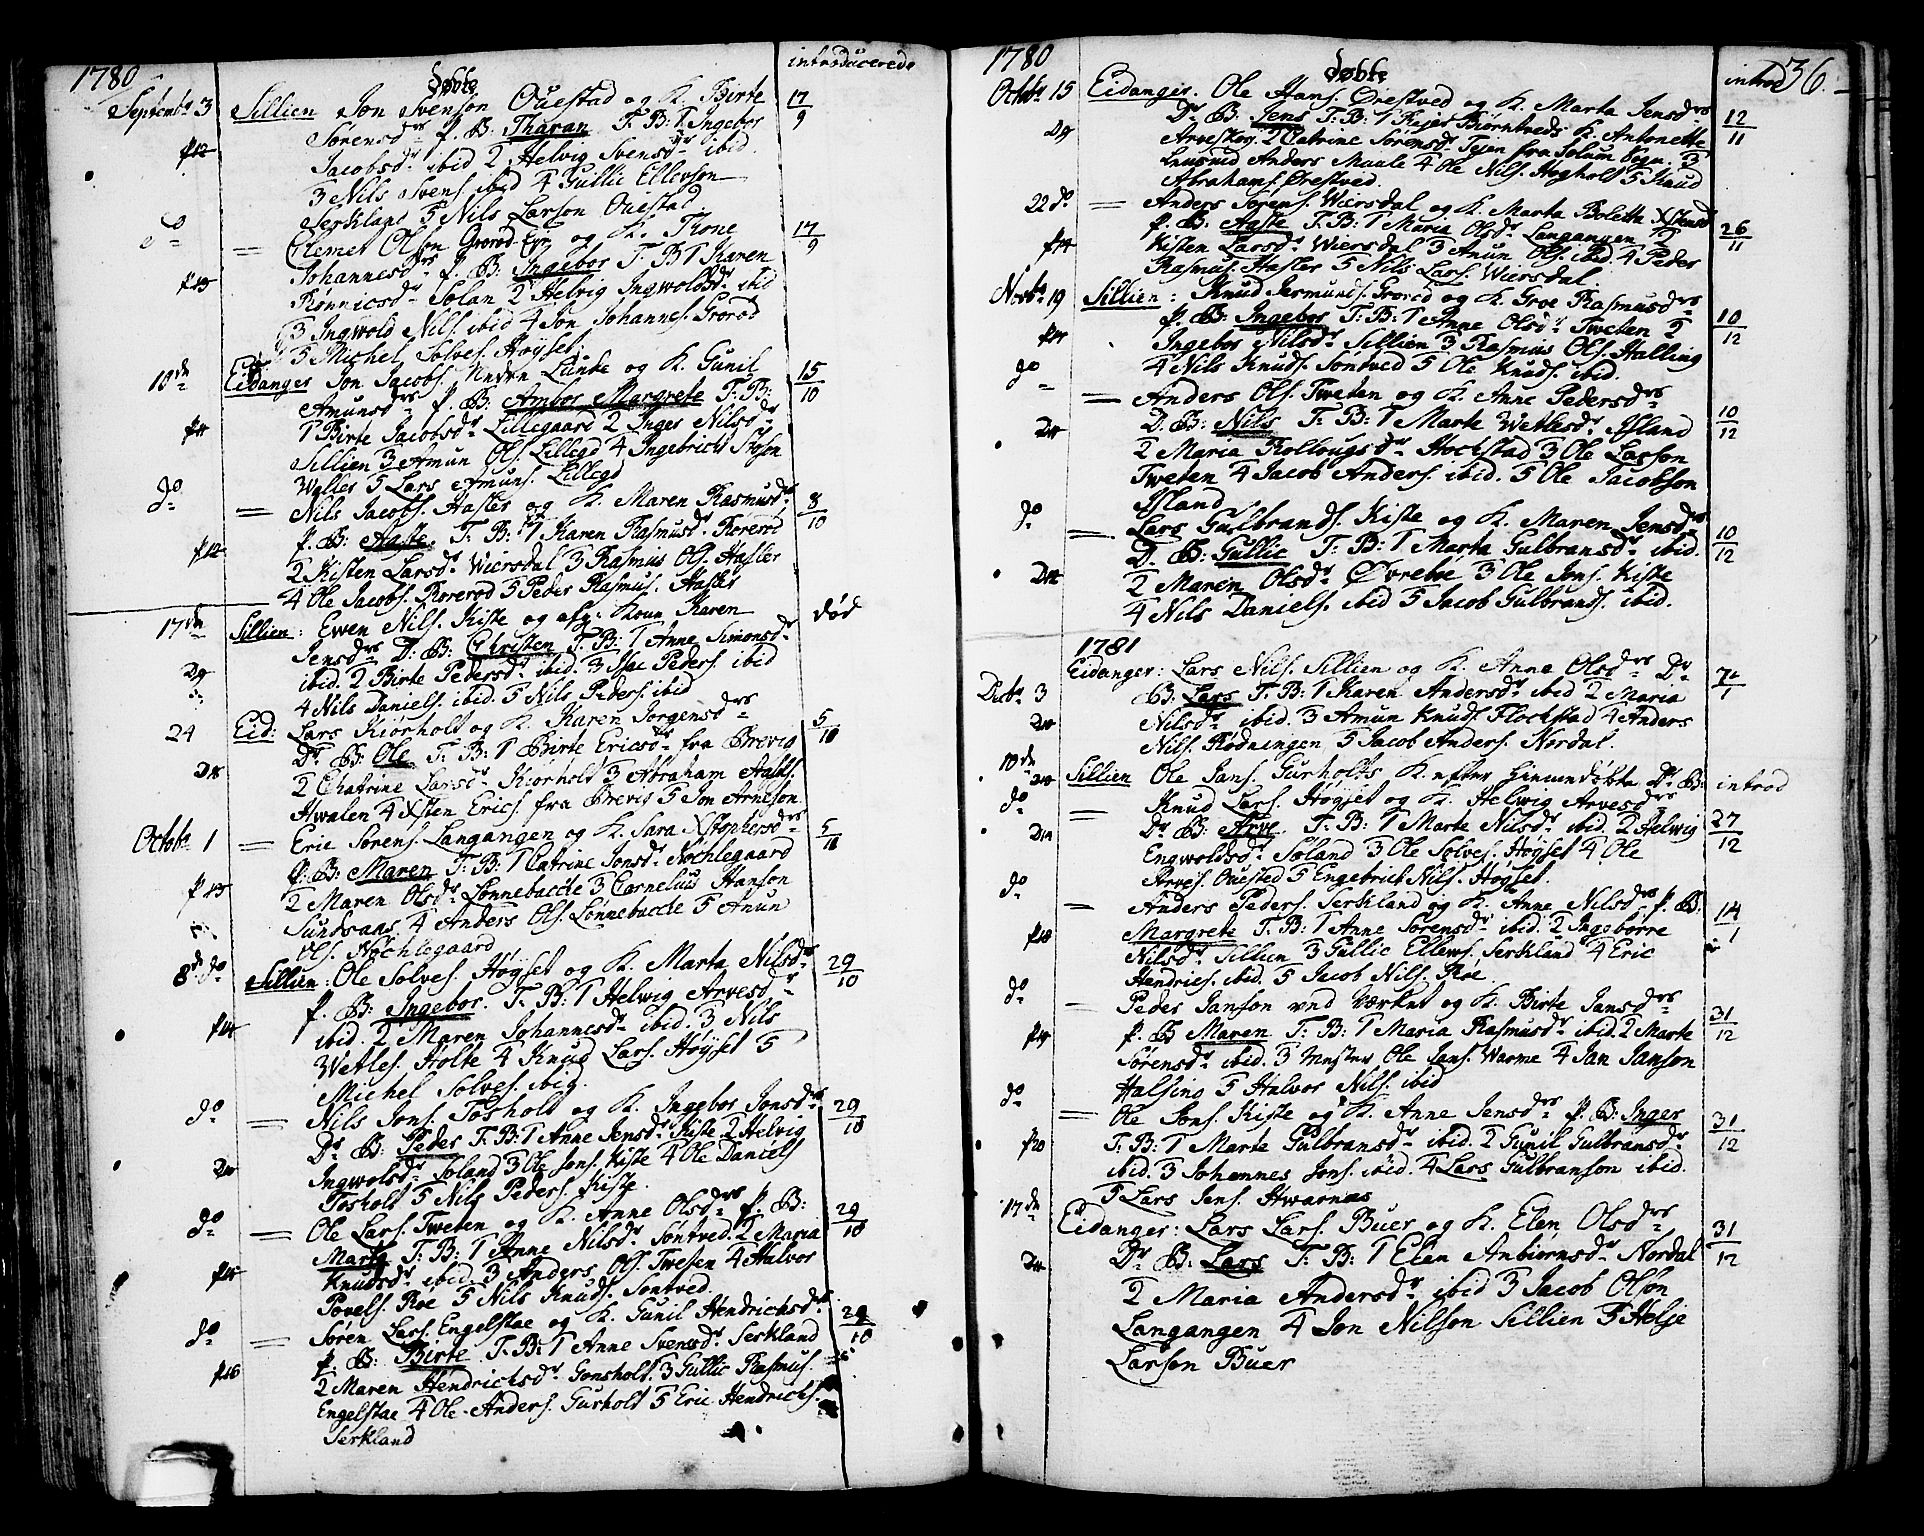 1780 Døbte introducerede
Septembr 3 Sillien Jon Svenson Ouestad og K. Birte 17/9
Sørensdr P. B: Tharan T. B: 1 Ingebor
p12 Jacobsdr ibid 2 Helvig Svensdr ibid
3 Nils Svens. ibid 4 Gullic Ellevson
Serkland 5 Nils Larson Ouestad
do Clemet Olson Grorød Eye og K. Trone 17/9
Johannesdr P. B: Ingebor T. B 1 Karen
p13 Rønnicsdr Solan 2 Helvig Ingwoldsdr ibid
3 Ingwold Nils. ibid 4 Jon Johannes. Grorød
5 Michel Solves. Høyset
10de Eidanger Jon Jacobs. Nedre Lunde og K. Gunil 15/10
Amunsdr P. B: Ambor Margrete T. B:
p11 1 Birte Jacobsdr Lillegaard 2 Inger Nilsdr
Sillien 3 Amun Ols. Lillegd 4 Ingebricht
Waller 5 Lars Amuns. Lillegd
do Nils Jacobs. Hasler og K. Maren Rasmusdr 8/10
p12 P. B: Aaste. T. B: 1 Karen Rasmusdr Rorerød
2 Kisten Larsdr Wiersdal 3 Rasmus Ols. Hasler
4 Ole Jacobs. Rorerød 5 Peder Rasmus. Hasler
17de Sillien: Ewen Nils. Kiste og afg: Koun Karen død
Jensdr D: B: Christen T. B: 1 Anne Simonsdr
D9 ibid. 2 Birte Pedersdr ibid. 3 Isac Peders. ibid
4 Nils Daniels. ibid. 5 Nils Peders. ibid
24 Eid: Lars Kiørholt og K. Karen Jorgensdr 5/10
Dr B: Ole T. B: 1 Birte Ericsdr fra Brevig
2 Chatrine Larsdr Kiorholt 3 Abraham
Hwalen 4 Xsten Erics. fra Brevig 5 Jon Arneson
Octobr 1 Eric Sørens. Langangen og K. Sara Xstophersdr 5/11
P. B: Maren T. B: 1 Catrine Jonsdr Nøchlegaard
p13 2 Maren Olsdr Lønnebacke 3 Cornelius Hanson
Sundsaas 4 Anders Ols. Lønnebacke 5 Anun
Ols. Nøchlegaard
8de do Sillien: Ole Solves. Høyset og K. Marta Nilsdr 29/10
P. B: Ingebor. T. B: 1 Helwig Arvesdr
p14 ibid. 2 Maren Johannesdr ibid. 3 Nils
Wetles. Holte 4 Knud Lars. Høyset 5
Michel Solves. ibig.
do Nils Jons. Tosholt og K. Ingebor Jonsdr 29/10
Dr B: Peder T. B: 1 Anne Jensdr Kiste 2 Helvig
Ingwolsdr Soland 3 Ole Jons. Kiste 4 Ole Daniels
Tosholt 5 Nils Peders. Kiste.
do Ole Lars. Tweten og K. Anne Olsdr P. B: 29/10
Marte T. B: 1 Anne Nilsdr Søntved. 2 Maria
p15 Knudsdr ibid. 3 Anders Ols. Tweten 4 Halvor
Povels. Roe 5 Nils Knuds. Søntved.
do Søren Lars. Engelstae og K. Gunil Hendrichsdr 29/10
P. B: Birte T. B: 1 Anne Svensdr Serkland
p16 2 Maren Hendrichsdr Gonsholt. 3 Gullic Rasmus.
Engelstae 4 Ole Anders. Gurholt 5 Eric Hendrichs.
Serkland
1780 Døbte introd 36.
Octobr 15 Eidanger. Ole Hans. Ørestved og K. Marta Jensdr 12/11
Dr B: Jens T: B: 1 Rejer Biørntveds K. Antonette
D9 Arveskog. 2 Catrine Sørensdr Tejen fra Solum Sogn. 3
Anders Maule 4 Ole Nils. Hogholt 5 Knud
Abrahams. Ørestved.
22 do Anders Sørens. Wiersdal og K. Marta Bolette Xstensdr 26/11
P. B: Aaste T. B: 1 Maria Olsdr Langangen 2
p14 Kisten Larsdr Wiersdal 3 Anun Ols. ibid. 4 Peder
Rasmus. Hasler 5 Nils Lars. Wiersdal.
Novbr 19 Sillien: Knud Jermunds. Grorød og K. Groe Rasmusdr 10/12
P. B: Ingebor T: B: 1 Anne Olsdr Tweten 2
Ingebor Nilsdr Sillien 3 Rasmus Ols. Halling
4 Nils Knuds. Søntved 5 Ole Knuds. ibid.
do Anders Ols. Tweten og K. Anne Pedersdr 10/12
D. B: Nils T. B: 1 Marte Wetlesdr Øsland
2 Maria Rollougsdr Hockstad 3 Ole Larson
Tweten 4 Jacob Anders. ibid. 5 Ole Jacobson
Øsland
do Lars Gulbrands. Kiste og K. Maren Jensdr 10/12
D. B: Gullic T. B: 1 Marta Gulbransdr ibid.
2 Maren Olsdr Øvreboe 3 Ole Jons. Kiste
4 Nils Daniels. ibid 5 Jacob Gulbrands. ibid.
1781
Decbr 3 Eidanger: Lars Nils. Sillien og K. Anne Olsdr Dr
B: Lars T. B: 1 Karen Andersdr ibid 2 Maria
Nilsdr ibid. 3 Amun Knuds. Flockstad 4 Anders
Nils. Rødningen 5 Jacob Anders. Nordal.
10de Sillien Ole Jans. Gurholts K. efter hiemmedøbte Dr B: introd
do Knud Lars. Høyset og K. Helwig Arvesdr 27/12
Dr B: Arve. T. B: 1 Marte Nilsdr ibid. 2 Helwig
Engwoldsdr Soland 3 Ole Solves. Høyset 4 Ole
Arves. Ouestad 5 Engebrict Nils. Høyset.
do Anders Peders. Serkland og K. Anne Nilsdr P. B: 14/1
p18 Margrete T. B: 1 Anne Sørensdr ibid. 2 Ingeborre
Nilsdr Sillien 3 Gullic Ellews. Serkland 4 Eric
Hendrics. ibid. 5 Jacob Nils. Roe
do Peder Janson ved Værket og K. Birte Jansdr 31/12
p19 P. B Maren T. B: 1 Maria Rasmusdr ibid. 2 Marte
Sørensdr ibid. 3 Mester Ole Jans. Warme 4 Jan Janson
Halsing 5 Halvor Nils. ibid
do Ole Jons. Kiste og K. Anne Jensdr P. B: Inger 31/12
p20 T: B: 1 Marte Gulbransdr ibid. 2 Gunil Gulbransdr
ibid. 3 Johannes Jons. ibid. 4 Lars Gulbranson ibid.
5 Lars Jens. Hwarnæs
17de Eidanger: Lars Lars. Buer og K. Elen Olsdr 31/12
Dr B: Lars T: B: 1 Elen Anbiørnsdr Nordal
2 Maria Andersdr ibid 3 Jacob Olson
Langangen 4 Jon Nilson Sillien 5 Helje
Larson Buer